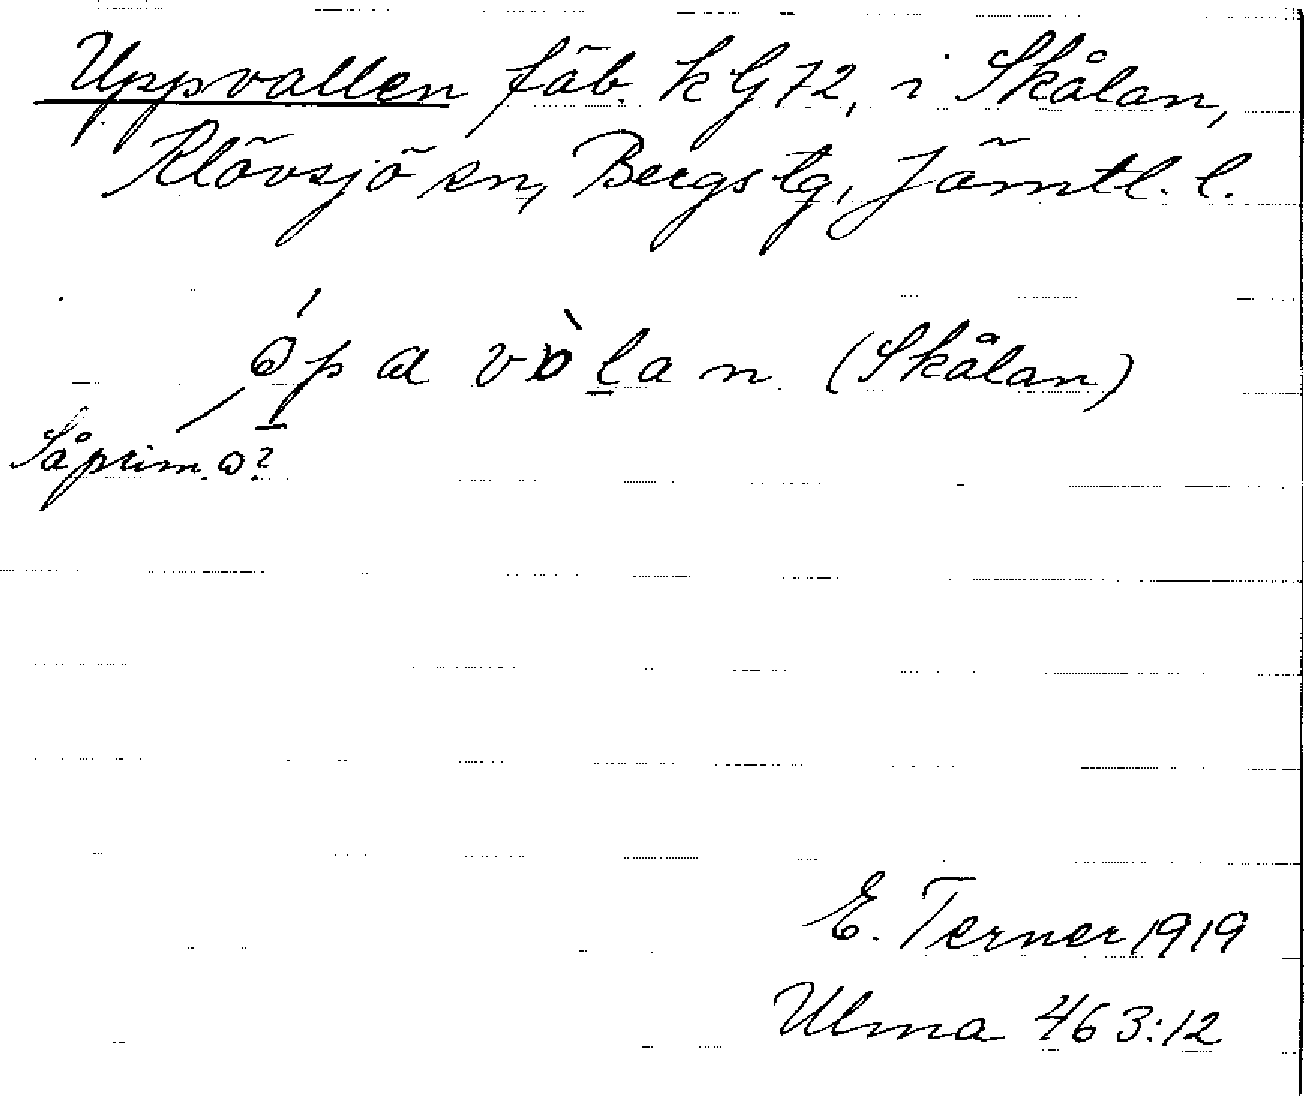 Uppvallen fäb. kG72, i Skålan,
Klövsjö sn, Bergs tg, Jämtl. l.
ópa vòlan (Skålan)
Så prim. o?
E. Terner 1919
Ulma 463:12